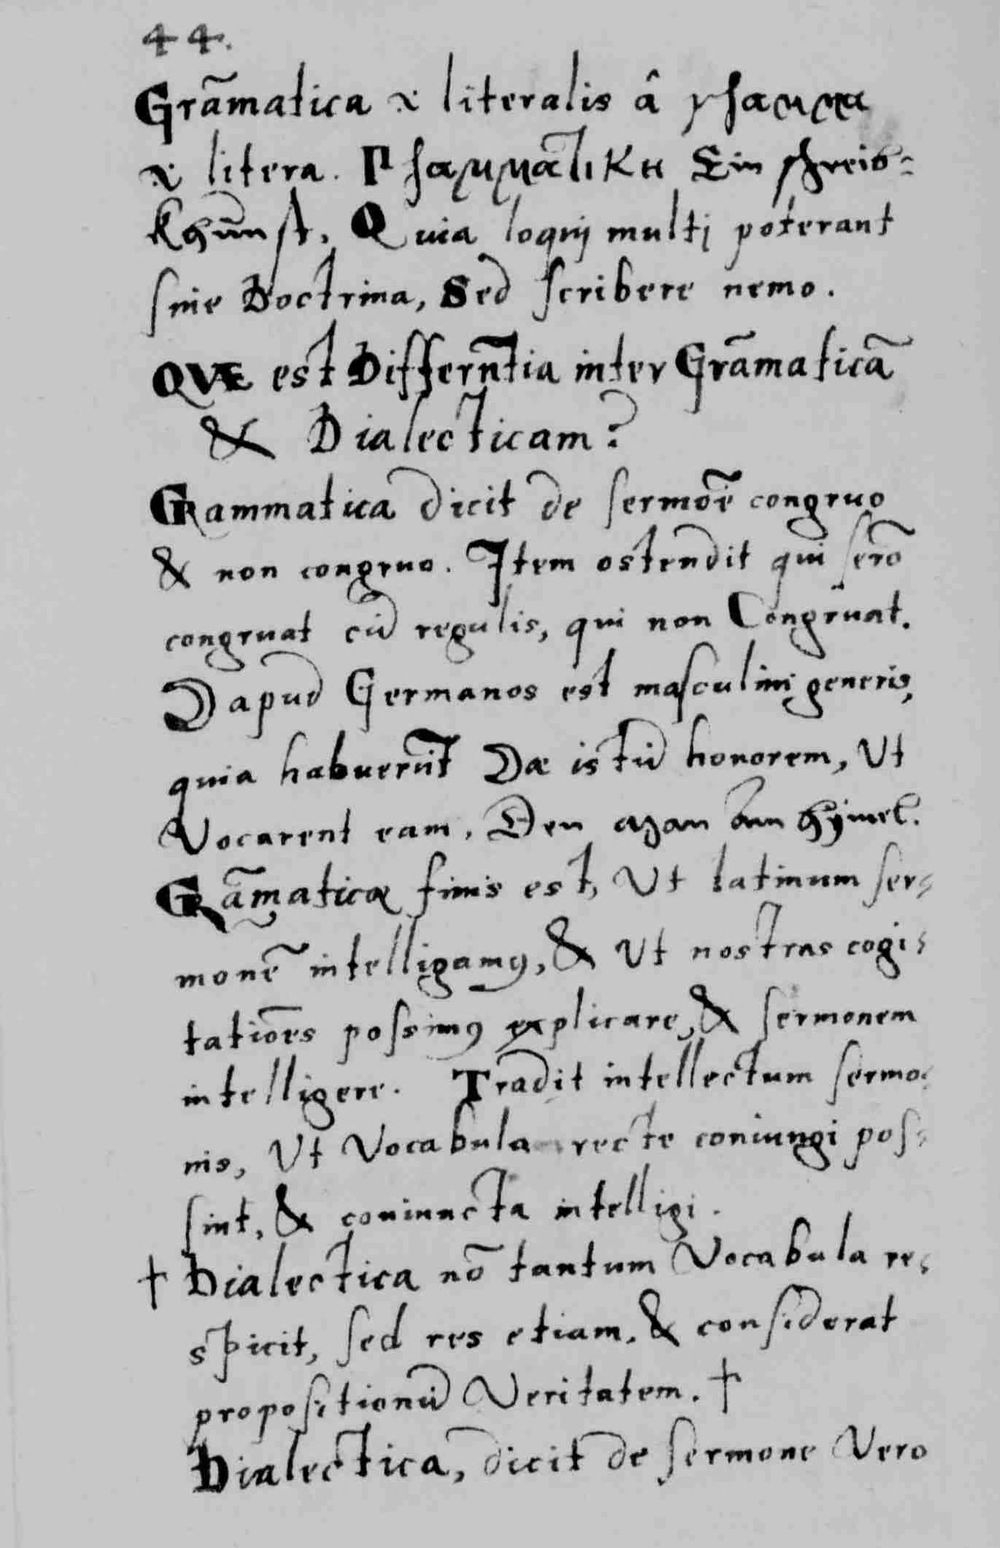 44.
Grãmatica ɤ literalis â γραμμα
ɤ litera. Γραμματικη Ein schreib=
Khũnst. Quia loqui multi poterant
sine Doctrina, Sed scribere nemo.
QVÆ est Differñtia inter Grãmaticã
& Dialecticam?
Grammatica dicit de sermõe congruo
& non congruo. Item ostendit qui serõ
congruat cũ regulis, qui non Congruat.
Dapud Germanos est masculini generis,
quia habuerũt Dæ istũ honorem, Ut
Vocarent eam, Den Man am Hÿmel.
Grãmaticæ finis est, Ut latinum ser=
monẽ intelligamꝰ, & Ut nostras cogi=
tatiões possimꝰ explicare, & sermonem
intelligere. Tradit intellectum sermo=
nis, Ut Vocabula recte coniungi pos=
sint, & coniuncta intelligi.
† Dialectica nõ tantum Vocabula re=
spicit, sed res etiam, & considerat
propositionũ Veritatem. †
Dialectica, dicit de sermone Vero